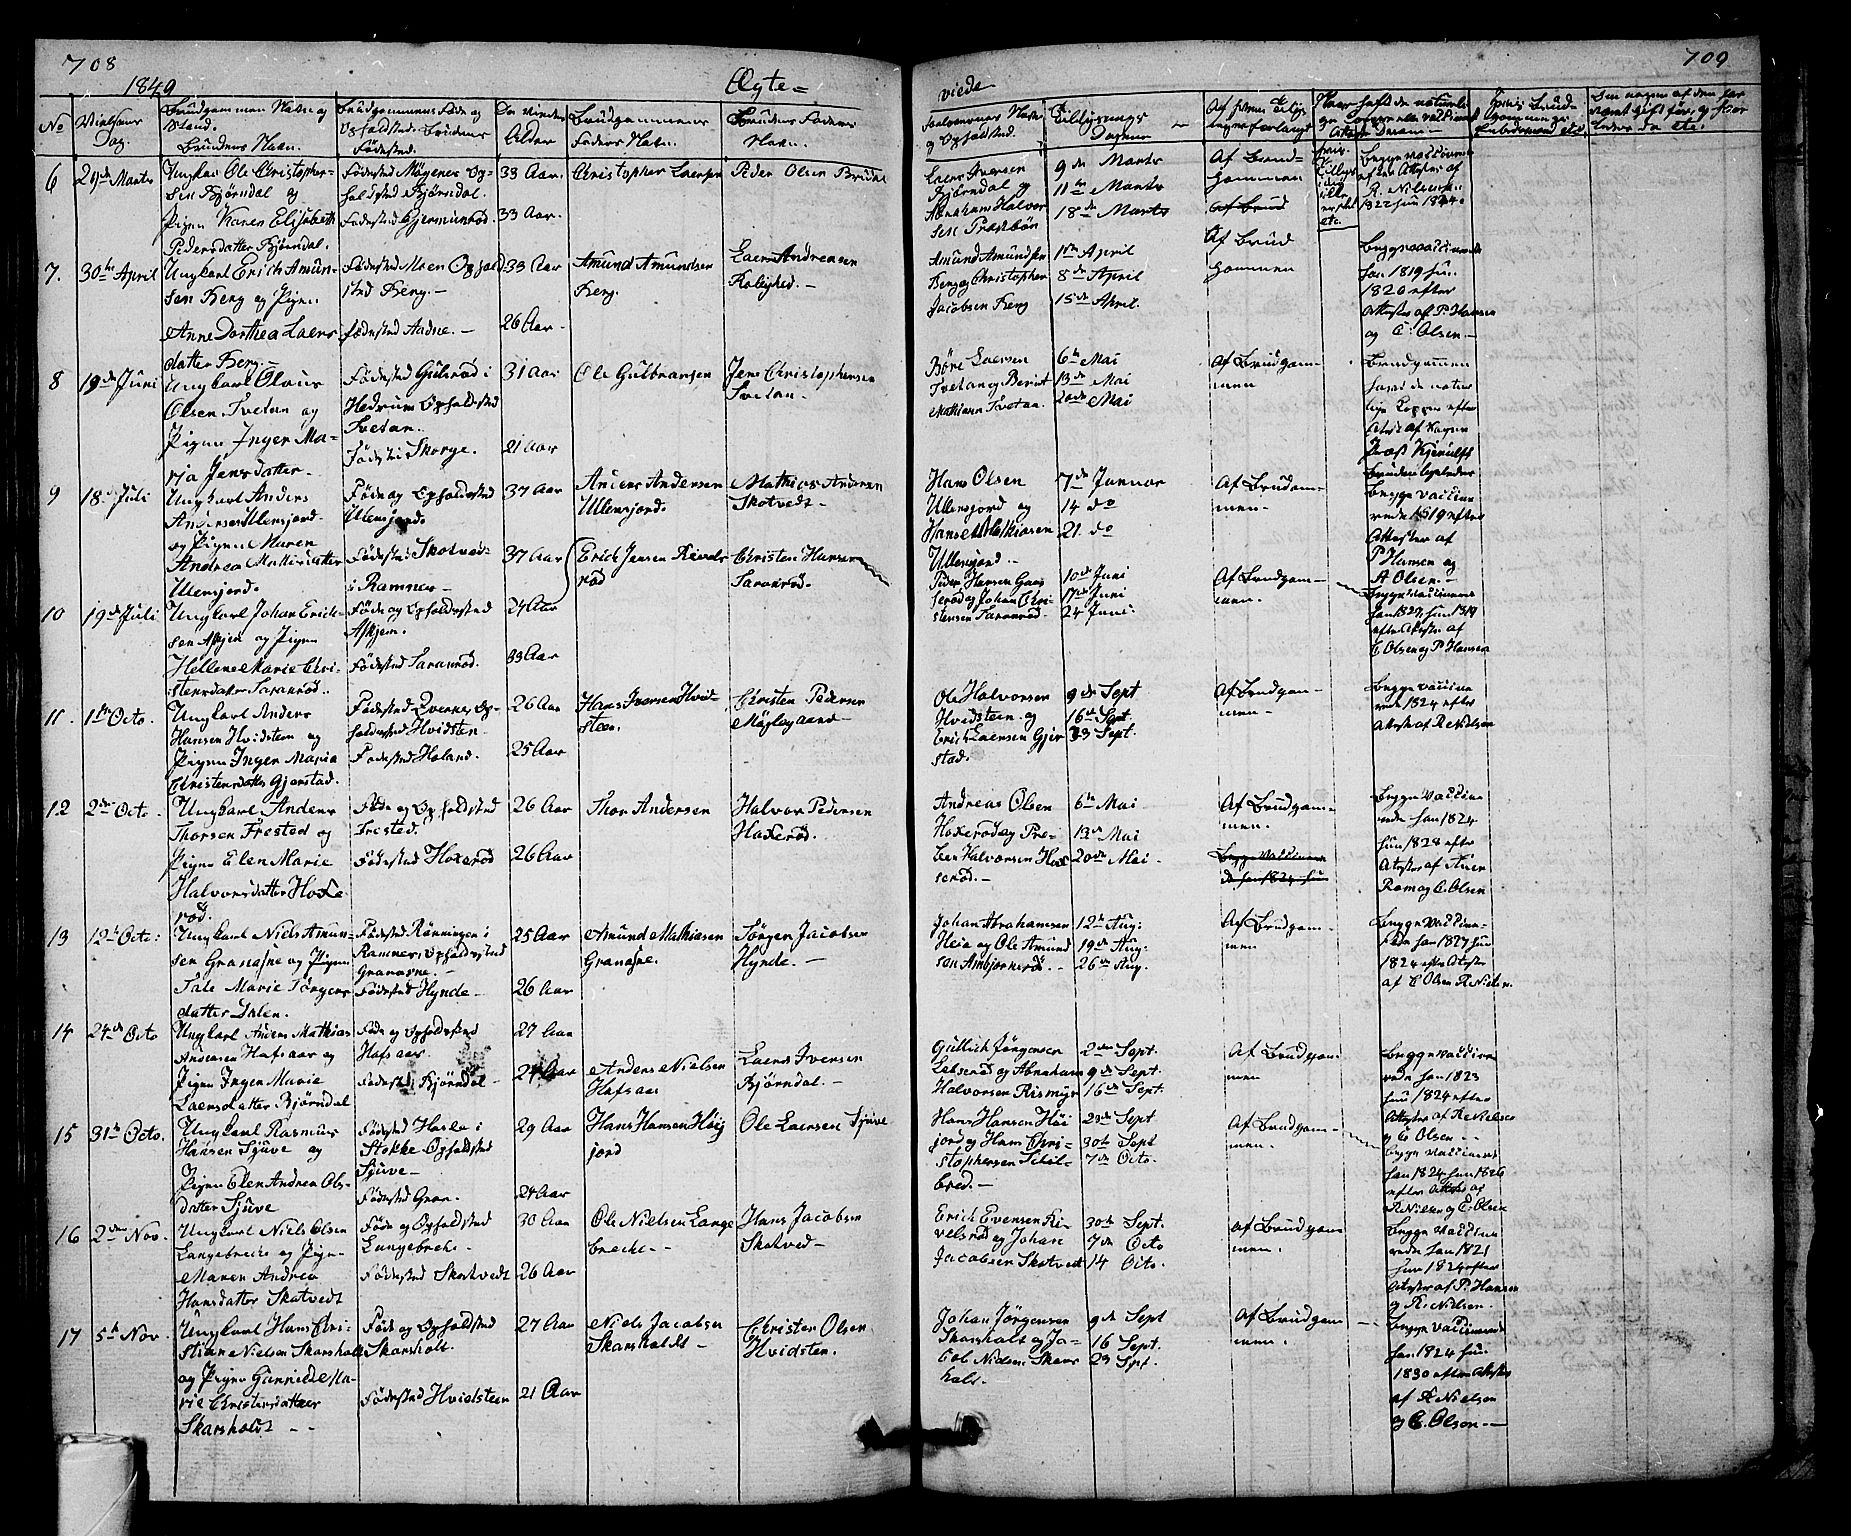 708
1849
Ægte=
viede
709
No
Vielsens
Dag.
Brudgommens Navn og
Stand.
Brudens Navn.
Brudgommens Føde og
Opholdsted. Brudens
Fødested.
De Viedes
Alder
Brudgommens
Faders Navn.
Brudens Faders
Navn.
Forlovernes Navn
og Opholdsted.
Tillysnings
Dagene
6
29de Marts
Ungkarl Ole Christopher-
sen Bjørndal og
Pigen Karen Elisabeth
Pedersdatter Bjørndal.
Fødested Møgenes Op-
holdsted Bjørndal.
Fødested Gjermundrød.
33 Aar.
33 Aar.
Christopher Laersen
Peder Olsen Brudal
Laers Iversen
Bjørndal og
Abraham Halvor
sen Præstbøn
9de Marts
11te Marts
18de Marts
Af Brud=
gommen
Begge vaccinerede
efter Attester af
R. Nielsen
1822 hun 1824.
7.
30te April
Ungkarl Erich Amun-
sen Berg og Pigen
Anne Dorthea Laers
datter Berg.-
Fødested Moen Ophold
sted Berg.-
fødested Aadne.-
33 Aar
26 Aar.
Amund Amundsen
Berg.
Laers Andreasen
Rolighed.-
Amund Amundsen
Berg og Christopher
Jacobsen Berg
1ste April
8de April
15de April.
Af Brud
gommen
Begge vaccinerede
han 1819 hun
1820 efter
Attester af P. Hansen
og C. Olsen-
8
19de Juni
Ungkarl Olaus
Olsen Tvetan og
Pigen Inger Ma=
ria Jensdatter-
Fødested Gulsrød i
Hedrum Opholdsted
Tvetan.
Fødested Skorge.
31 Aar
21 Aar
Ole Gulbransen
Jens Christophersen
Tvetan.
Børe Laersen
Tvetan og Berint
Mathisen Tvetan.
6te Mai
13de Mai
20de Mai
Af Brudgom-
men
Brudgommen
havt de natur
lige Kopper efter
Attest af Sogne
Præst Kjerulff
9
18de Juli
Ungkarl Anders
Andersen Ullensjord
og Pigen Maren
Andrea Mathisdatter
Ullensjord.
Føde og Opholdsted
Ullensjord.
Fødested Skotved
i Ramnes-
37 Aar
37 Aar
Anders Andersen
Ullensjord.
Mathias Andersen
Skotvedt-
Hans Olsen
Ullensjord og
Hans Mathiasen
Ullensjord..
7de Januar
14 do
21. do
Af Brudgom-
men.-
Begge vaccine
rede 1819 efter
Attester af
P. Hansen og
A Olsen.-
10
19de Juli
Ungkarl Johan Erich-
sen Askjem og Pigen
Hellene Marie Chri-
stensdatter Taranrød..
Føde og Opholdsted
Askjem.
Fødested Taranrød.
24 Aar
33 Aar
Erich Jensen Revels
rød
Christen Hansen
Taranrød.
Peder Hansen Gaas
serød og Johan Chri-
stensen Taranrød.
10de Juni
17de Juni
24 Juni.
Af Brudgom-
men.
Begge vaccinerede
han 1827, hun 1819
efter Attester af
C Olsen og P. Hansen
11.
1ste Octo.
Ungkarl Anders
Hansen Hvidsteen og
Pigen Inger Maria
Christensdatter Gjerstad.
Fødested Qvernes Op-
holdsted Hvidsten-
Fødested Holand.
26 Aar
25 Aar
Hans Iversen Hvid-
steen.
Christen Pedersen
Møglegaard-
Ole Halvorsen
Hvidsteen og
Erich Laersen Gjer
stad.
9de Sept
16de Sept
23 Sept.
Af Brudgom-
men-
Begge vaccine
rede 1824 efter
Attest af R Nielsen
12
2den Octo.
Ungkarl Anders
Thorsen Frested og
Pigen Elen Marie
Halvorsdatter Hoxe
rød.
Føde og Opholdsted
Frested.
Fødested Hoxerød
26 Aar
26 Aar
Thor Andersen
Halvor Pedersen
Hoxerød.
Andreas Olsen
Hoxerød og Pre-
ben Halvorsen Hox
serød.-
6te Mai
13de Mai
20de Mai-
Af Brudgom-
men.
Begge vaccine
rede han 1824
hun 1828 efter
Attester af
Ram og C. Olsen
13
12te Octo:
Ungkarl Niels Amun-
sen Granasne og Pigen
Tale Marie Jørgens
datter Dalen.
Fødested Rønningen i
Ramnes, Opholdsted
Granasne.-
Fødested Hynde-
25 Aar
26 Aar
Amund Mathiesen
Granasne.
Jørgen Jacobsen
Hynde.-
Johan Abrahamsen
Heia og Ole Amund
sen Ambjørnsrød.-
12te Aug:
19de Aug:
26de Aug.
Af Brudgom-
men
Begge vaccine-
rede han 1827 hun
1824 efter Attester
af C Olsen R Nielsen.
14
24de Octo
Ungkarl Anders Mathias
Andersen Hafsaar og
Pigen Inger Marie
Laersdatter Bjørndal
Føde og Opholdsted
Hafsaar.
Fødested Bjørndal-
27 Aar
24 Aar
Anders Nielsen
Hafsaar
Laers Iversen
Bjørndal.-
Gullich Jørgensen
Lekserød og Abraham
Halvorsen Rismyr
2den Sept.
9de Sept.
16de Sept.
Af Brudgom
men
Begge vaccine
rede han 1823
hun 1824 efter
Attester af R Nielsen
og C Olsen-
15
31te Octo.
Ungkarl Rasmus
Hansen Sjuve og
Pigen Elen Andrea Ols-
datter Sjuve
Fødested Hasle i
Stokke Opholdsted
Sjuve-
Fødested Gran.
29 Aar
24 Aar
Hans Hansen Høi
jord
Ole Laersen Sjuve
Hans Hansen Høi
jord og Hans Chri-
stophersen Skiel-
bred.-
23de Sept
30te Sept
7de Octo.
Af Brudgom-
men.
Begge vaccinerede
han 1824 hun 1826
efter Attester af
R Nielsen og C. Olsen
16
2den Nov.
Ungkarl Niels Olsen
Langebrecke og Pigen
Maren Andrea
Hansdatter Skotvedt
Føde og Opholdsted
Langebreke-
Fødested Skotvedt
30 Aar
26 Aar
Ole Nielsen Lange
brecke-
Hans Jacobsen
Skotved-
Erich Evensen Ri-
velsrød og Johan
Jacobsen Skotvedt
30te Sept.
7de Octo
14 Octo.
Af Brudgom
men.
Begge vaccine
rede han 1821
hun 1824 efter
Attester af P. Hansen
og R. Nielsen.
17
5te Nov.
Ungkarl Hans Chri-
stian Nielsen Skarsholt
og Pigen Gunnilde Ma-
rie Christensdatter
Skarsholdt - -
Føde og Opholdsted
Skarsholt.
Fødested Hvidsteen
27 Aar
21 Aar
Niels Jacobsen
Skarsholdt-
Christen Olsen
Hvidsten.
Johan Jørgensen
Skarsholt og Ja-
cob Nielsen Skars
holt.
9de Sept
16 Sept.
23 Spt.
Af Brudgom
men.
Begge vaccinerede
han 1824 hun
1830 efter Attester
af R Nielsen
og C. Olsen-